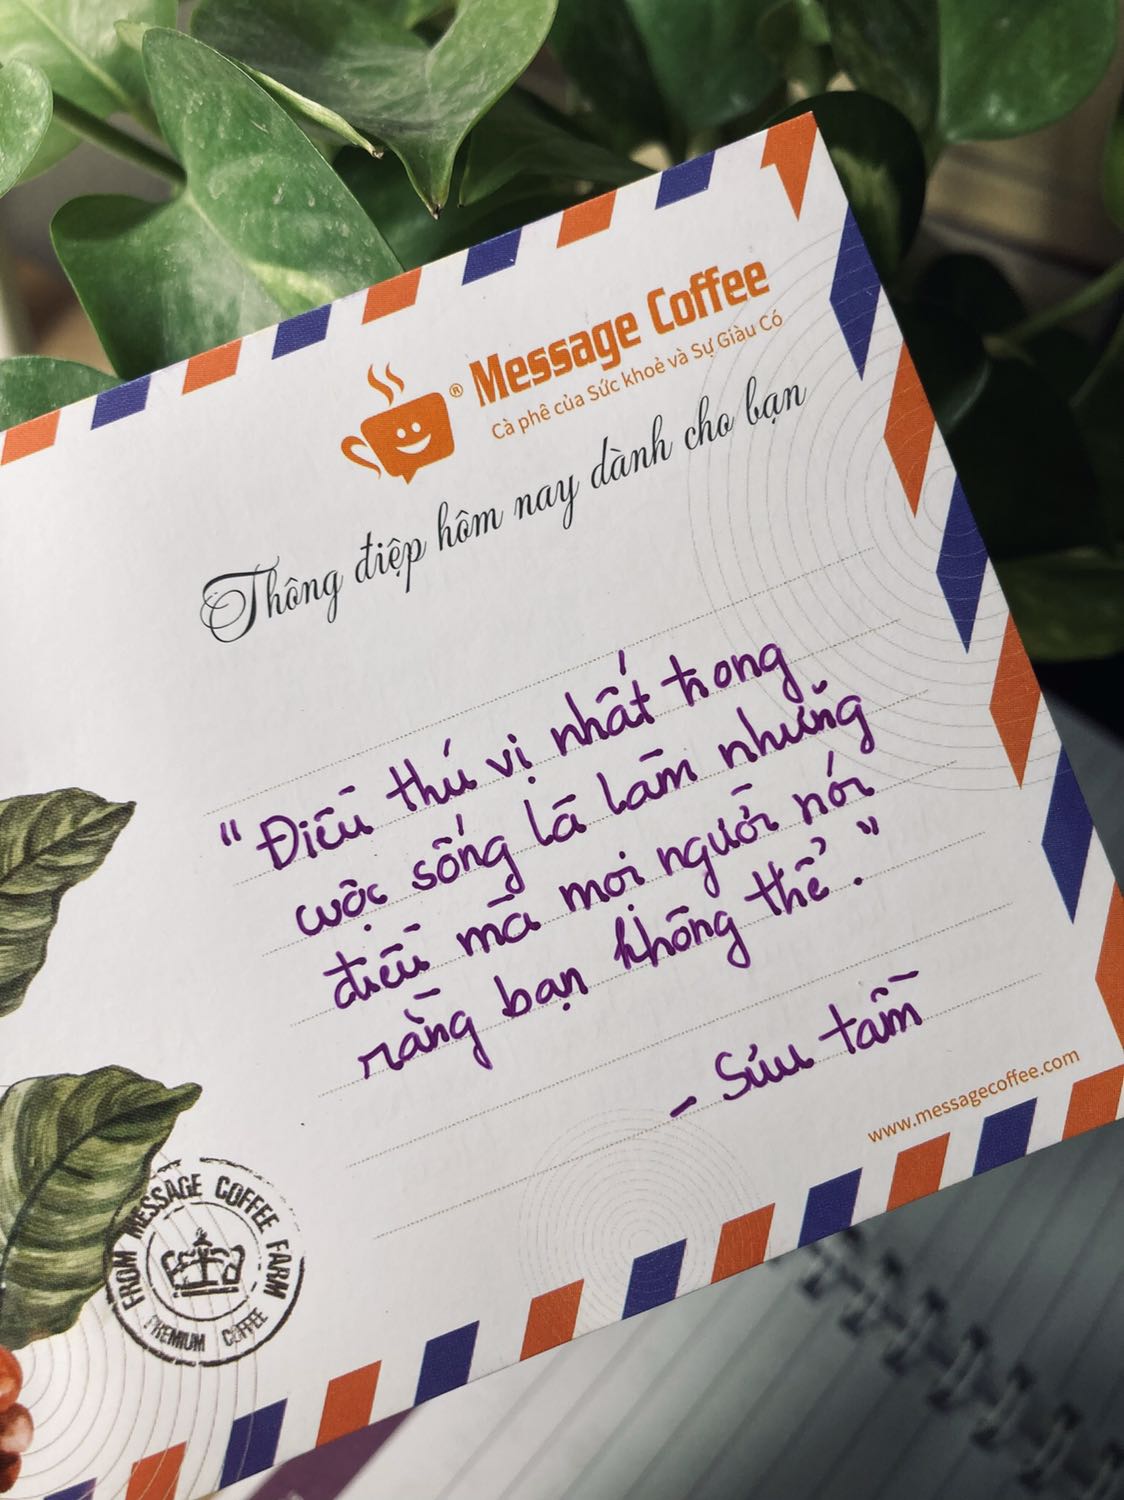 Message Coffee ®
Cà phê của Sức khoẻ và Sự Giàu Có
Thông điệp hôm nay dành cho bạn
"Điều thú vị nhất trong
cuộc sống là làm những
điều mà mọi người nói
rằng bạn không thể."
- Sưu tầm
www.messagecoffee.com
FROM MESSAGE COFFEE FARM
PREMIUM COFFEE